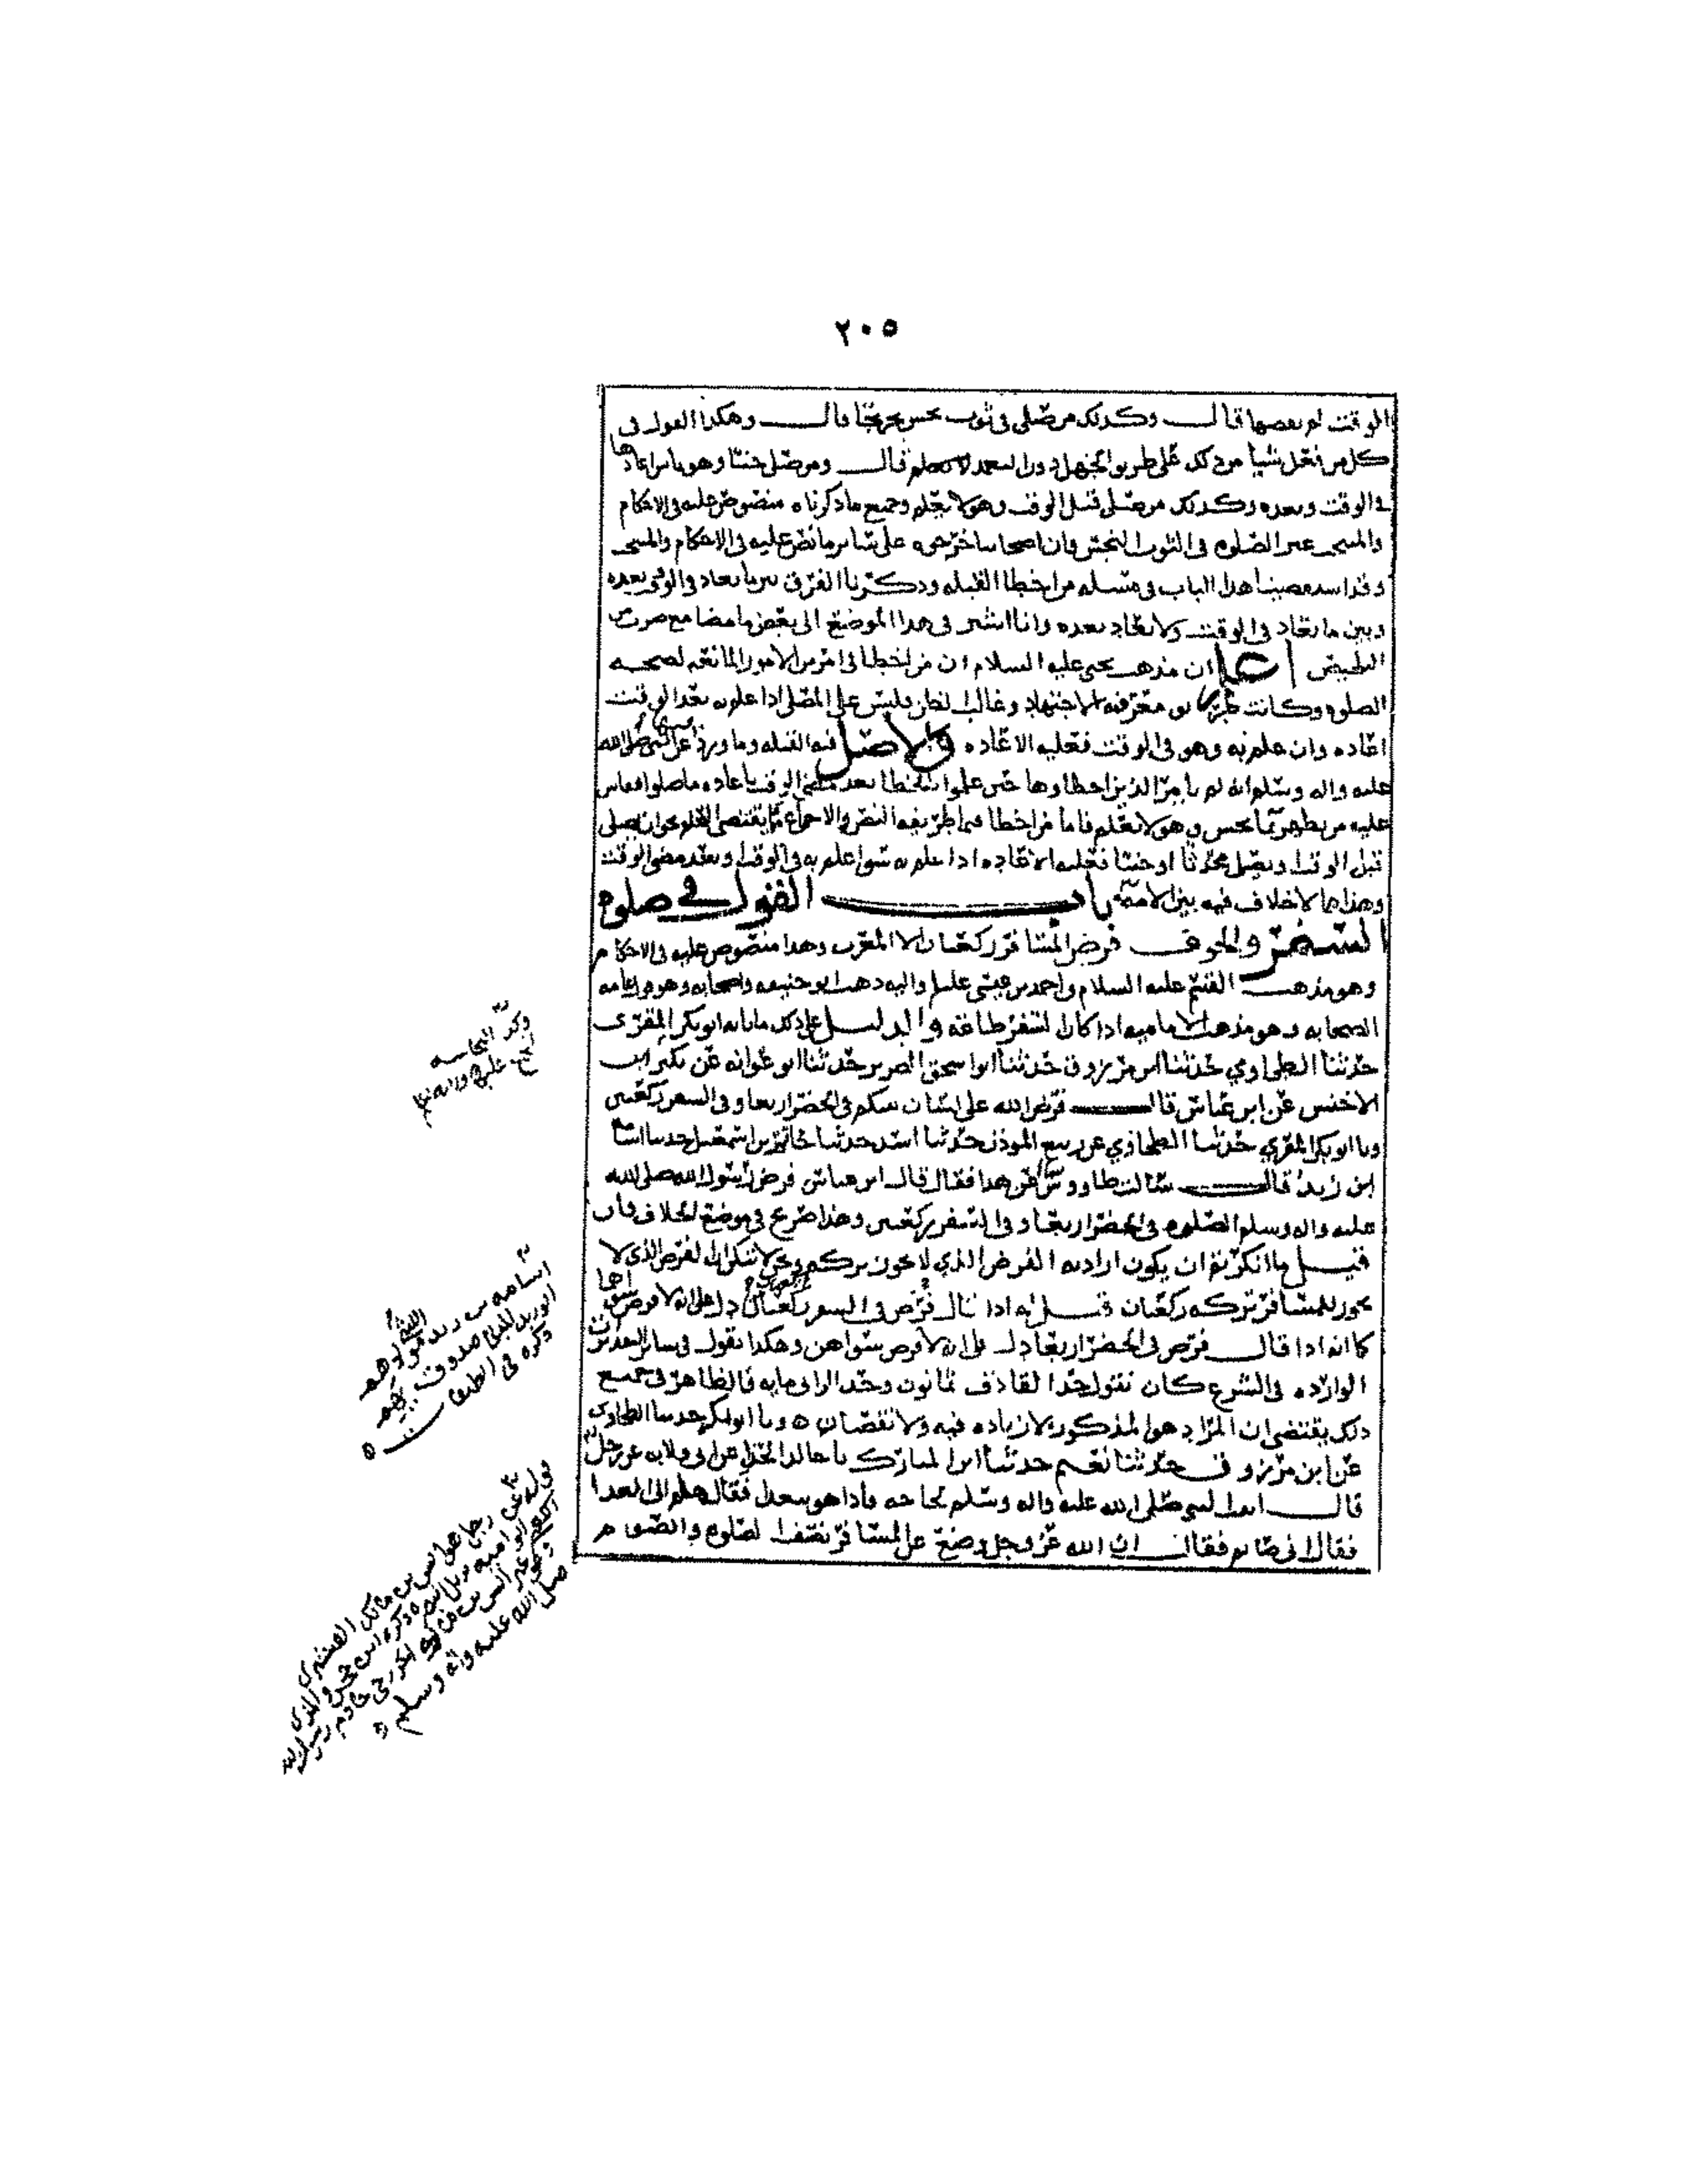 ٢٠٥
الوقت لم يعصها قال وكذلك من صلى في ثوب نجس قال وهكذا القول في
كل من فعل شيا من ذلك على طريق الجهل دون التعمد قال ومن صلى جنبا وهو ناس اعادها
في الوقت وبعده وكذلك من صلى قبل الوقت وهو لا يعلم وجميع ما ذكرناه منصوص عليه في الاحكام
والمنتخب غير الصلوه في الثوب النجس فان اصحابنا خرجوه على ساير ما نص عليه في الاحكام والمنتخب
وقد هذا الباب في مسله من اخطا القبله وذكرنا الفرق بين ما يعاد في الوقت وبعده
وبين ما يعاد في الوقت ولا يعاد بعده وانا اشير في هذا الموضع الى بعض ما مضا مع ضرب من
التلخيص اعلم ان مذهب يحيى عليه السلام ان من اخطا في امر من الامور المانعه لصحه
الصلوه وكانت طريق معرفته الاجتهاد وغالب الظن فليس على المصلي اذا علم به بعد الوقت
اعاده وان علم به وهو في الوقت فعليه الاعاده والاصل فيه القبله وما ورد عن النبي صلى الله
عليه واله وسلم انه لم يامر الذين اخطاوها حتى علموا الخطا بعد مضي الوقت باعاده ما صلوا فقاس
عليه من تطهر بما نجس وهو لا يعلم فاما من اخطا فيما طريقه النص والاجماع يصلي
قبل الوقت ويصلي محدثا او جنبا فعليه الاعاده اذا علم به سوا علم به في الوقت وبعد مضي الوقت
وهذا مما لا خلاف فيه بين الامه باب القول في صلوه
السفر والخوف فرض المسافر ركعتان الا المغرب وهذا منصوص عليه في الاحكام
وهو مذهب القسم عليه السلام واحمد بن عيسى عليلم واليه ذهب ابو حنيفه واصحابه وهو قول عامه
الصحابه وهو مذهب الاماميه اذا كان السفر طاعه والدليل على ذلك ما نا به ابو بكر المقري
حدثنا الطحاوي حدثنا ابن مرزوق حدثنا ابو اسحق الضرير حدثنا ابو عوانه عن بكير ابن
الاخنس عن ابن عباس قال فرض الله على لسان نبيكم في الحضر اربعا وفي السفر ركعتين
ونا ابو بكر المقري حدثنا الطحاوي عن ربيع الموذن حدثنا اسد حدثنا حاتم بن اسمعيل حدثنا اسامه
ابن زيد قال سالت طاووسا عن هذا فقال قال ابن عباس فرض رسول الله صلى الله
عليه واله وسلم الصلوه في الحضر اربعا وفي السفر ركعتين وهذا صريح في موضع الخلاف فان
قيل ما انكرتم ان يكون اراد به الفرض الذي لا يجوز تركه ونحن لا ننكر ان الفرض الذي لا
يجوز للمسافر تركه ركعتان قيل له اذا قال فرض في السفر ركعتان دل على انه لا فرض سواهما
كما انه اذا قال فرض في الحضر اربعا دل على انه لا فرض سواهن وهكذا نقول في سائر المقدرات
الوارده في الشرع كان نقول حد القاذف ثمانون وحد الزاني مايه فالظاهر في جميع
ذلك يقتضي ان المراد هو المذكور لا زياده فيه ولا نقصان ونا ابو بكر حدثنا الطحاوي
عن ابن مرزوق حدثنا نعيم حدثنا ابن المبارك نا خالد الحذا عن ابي قلابه عن رجل
قال النبي صلى الله عليه واله وسلم لحاجه فاذا هو يتغدا فقال هلم الى الغدا
فقال اني صايم فقال ان الله عز وجل وضع عن المسافر نصف الصلوه والصوم
وكذا النجاسه
اسامه بن زيد الليثي مولاهم
ابو زيد المدني صدوق يهم
ذكره في الطبقات
قوله عن رجل هو انس بن مالك القشيري
الكعبي ابو اميه نزل البصره ذكره ابن حجر والمزي
وهو غير انس بن مالك الخزرجي خادم رسول الله
صلى الله عليه واله وسلم